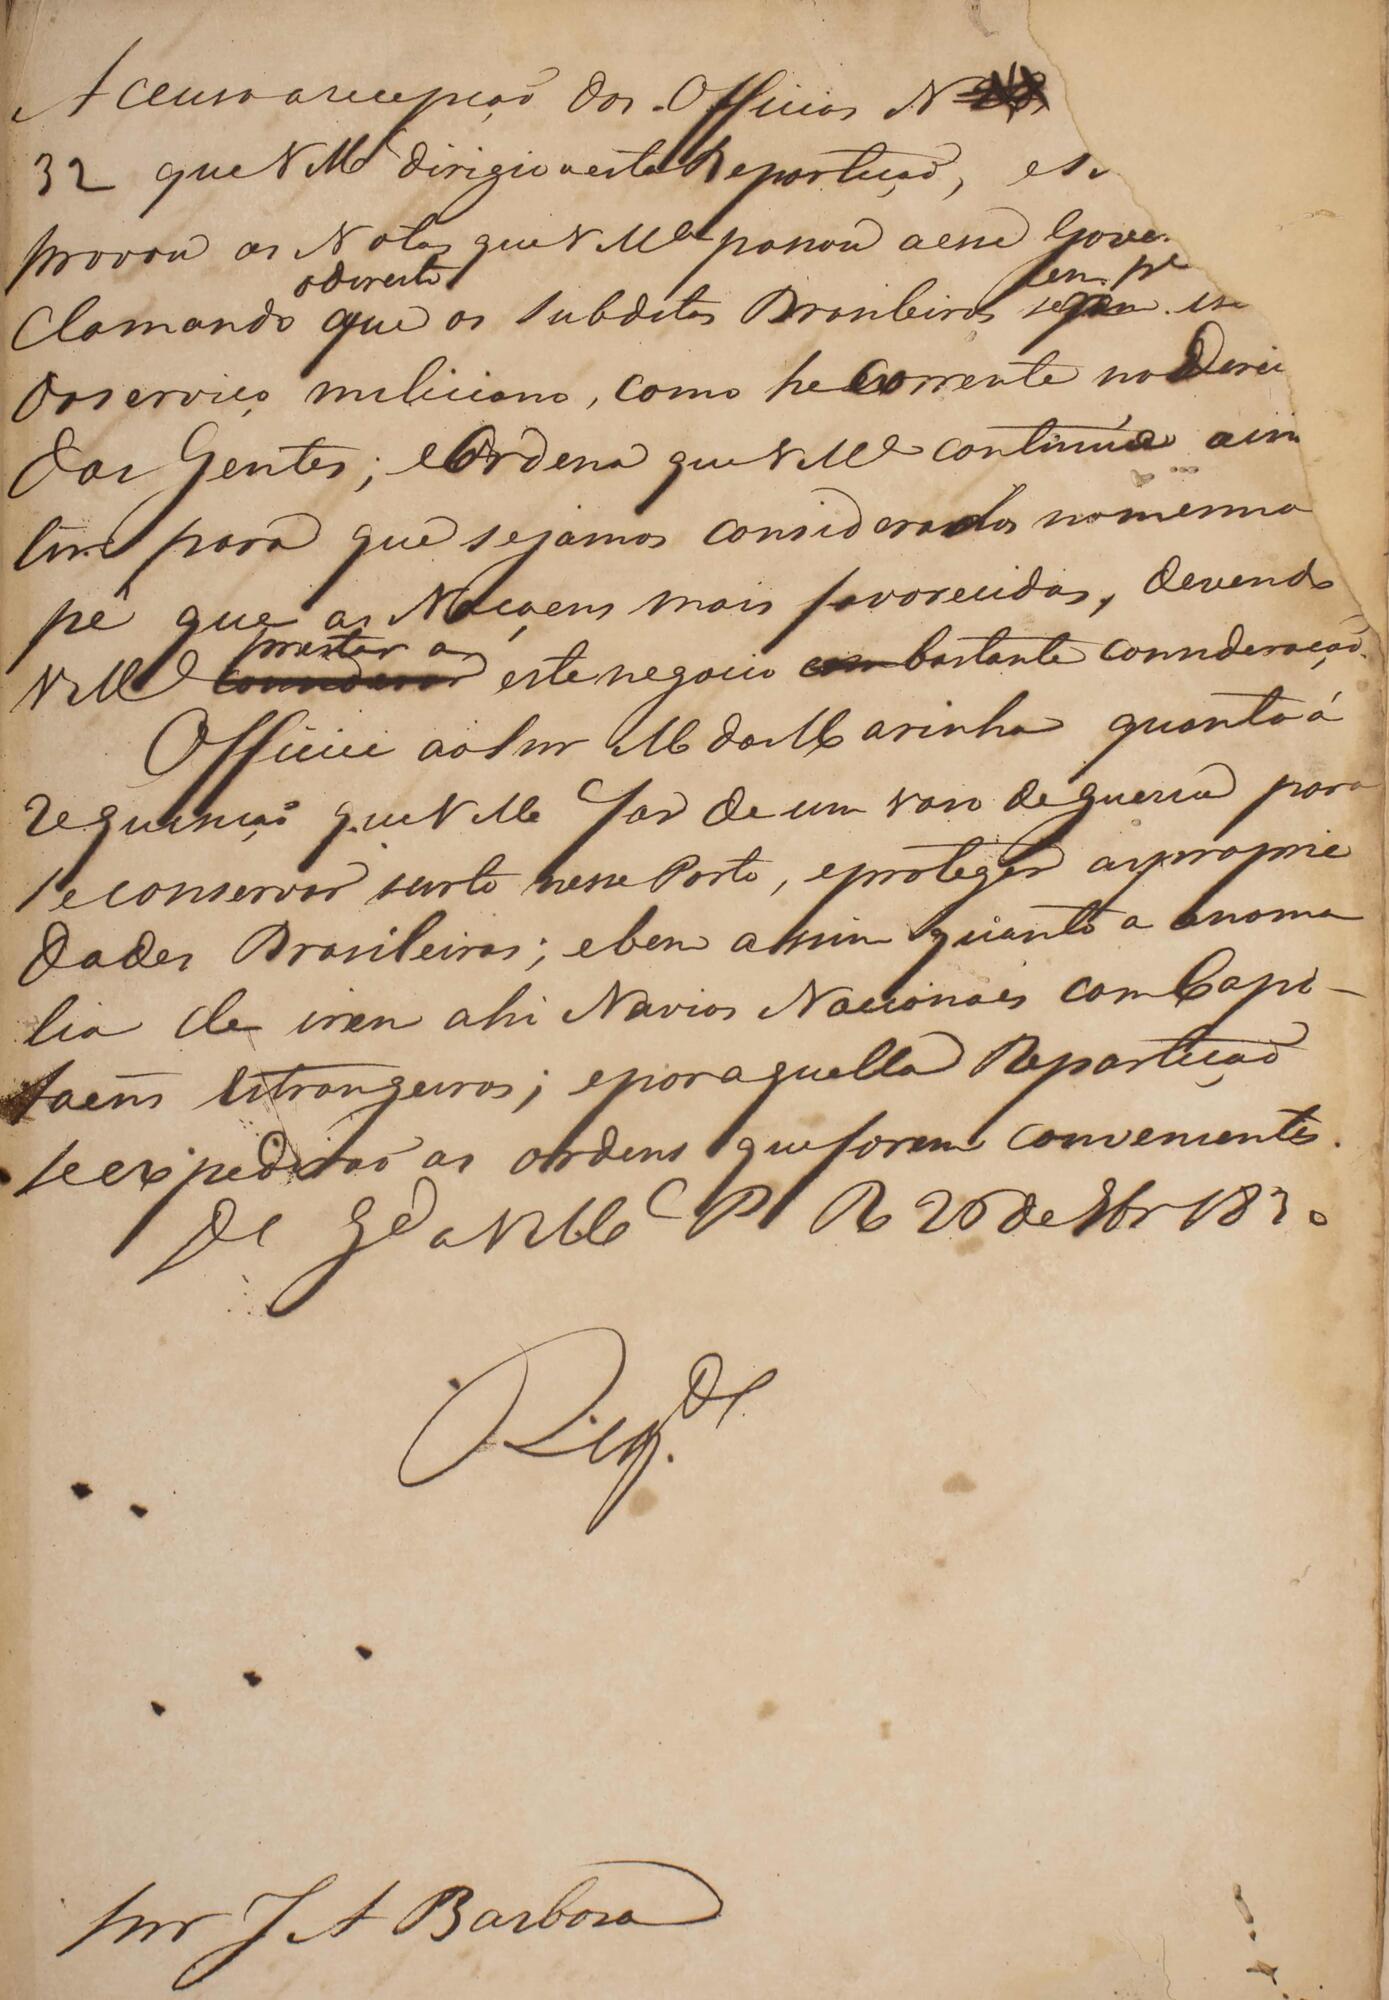 Accuso a recepção dos Officios N
32 que V Mce dirigio a esta Repartição, e
provou as Notas que V Mce passou a esse Gove
o direito sempre
clamando que os Subditos Brasileiros sejam
do serviço miliciano, como he corrente no Direi
das Gentes; e Ordena que V Mce continúe a in
tir para que sejamos considerados no mesmo
pé que as Naçoens mais favorecidas, devendo
prestar a
V Mce considerar este negocio com bastante consideração.
Officiei ao Snr M da Marinha quanto á
requisição que V Mce faz de um vaso de guerra para
se conservar surto nesse Porto, e proteger as proprie
dades Brasileiras; e bem assim quanto a anoma
lia de irem ahi Navios Nacionaes com Capi-
taens Estrangeiros; e por aquella Repartição
se expedirão as ordens que forem convenientes.
Ds Gde a V Mce P R 26 de 1830
Snr J A Barbosa